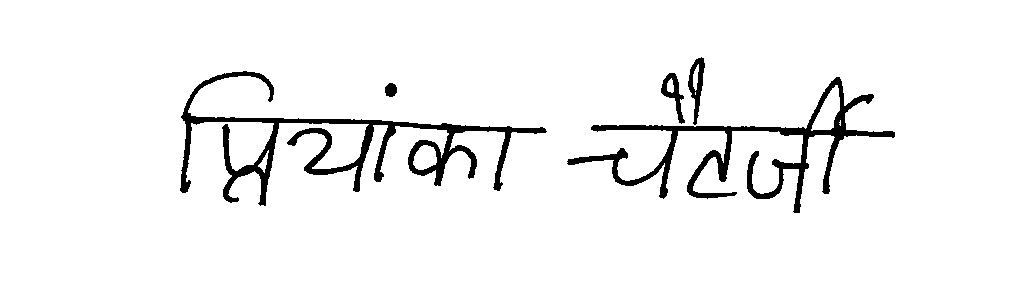 प्रियांका चैतर्जी